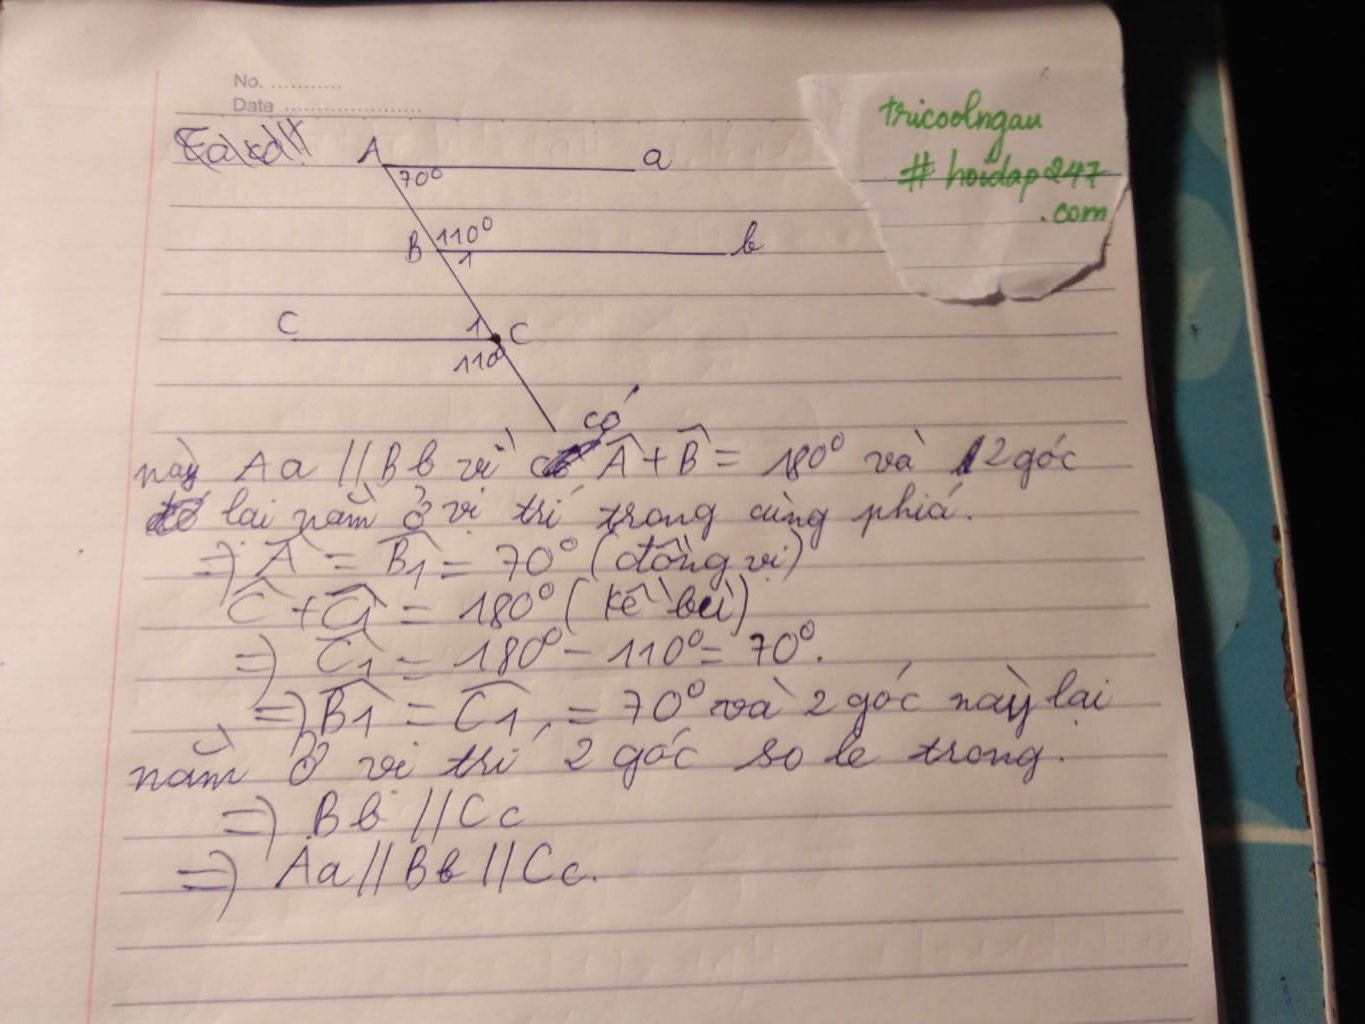 No. ...........
Date .....................
tricoolngau
# hoidap247
.com
A
a
70°
110°
B
b
1
C
1
C
110°
có
Aa // Bb vì Â + B̂ = 180° và 2 góc
lại nằm ở vị trí trong cùng phiá.
=> Â = B̂1 = 70° (đồng vị)
Ĉ + Ĉ1 = 180° (kề bù)
=> Ĉ1 = 180° - 110° = 70°.
=> B̂1 = Ĉ1 = 70° và 2 góc này lại
nằm ở vị trí 2 góc so le trong.
=> Bb // Cc
=> Aa // Bb // Cc.